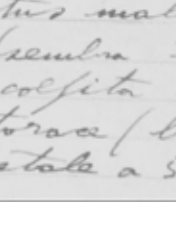 tus mal
sembra
colpita
torace / l
stale a s